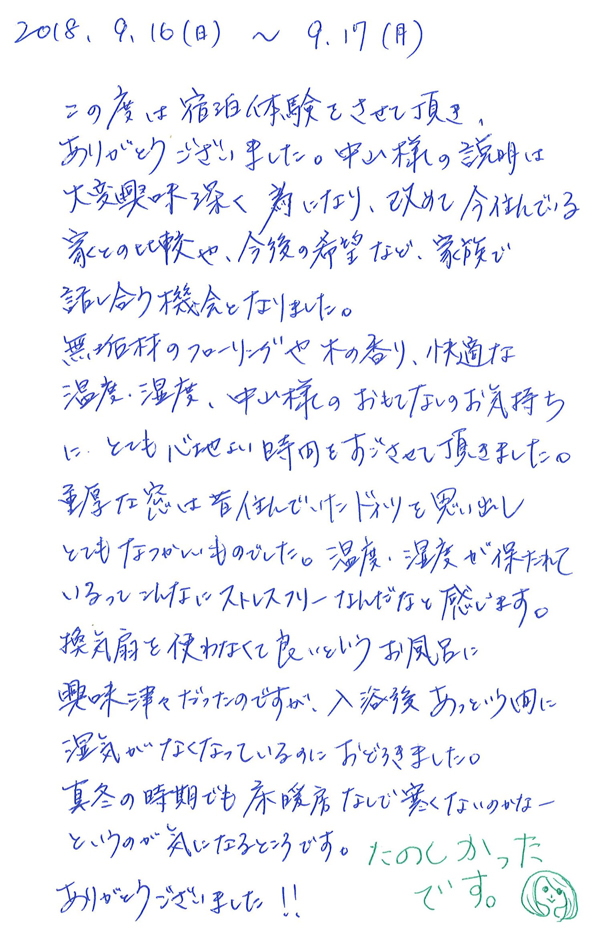 2018. 9.16(日) ～ 9.17(月)
この度は宿泊体験をさせて頂き、
ありがとうございました。中山様の説明は
大変興味深く為になり、改めて今住んでいる
家との比較や、今後の希望など、家族で
話し合う機会となりました。
無垢材のフローリングや木の香り、快適な
温度・湿度、中山様のおもてなしのお気持ち
に、とても心地よい時間をすごさせて頂きました。
重厚な窓は昔住んでいたドイツを思い出し
とてもなつかしいものでした。温度・湿度が保たれて
いるってこんなにストレスフリーなんだなと感じます。
換気扇を使わなくて良いというお風呂に
興味津々だったのですが、入浴後あっという間に
湿気がなくなっているのにおどろきました。
真冬の時期でも床暖房なしで寒くないのかなー
というのが気になるところです。
ありがとうございました!!
たのしかった
です。